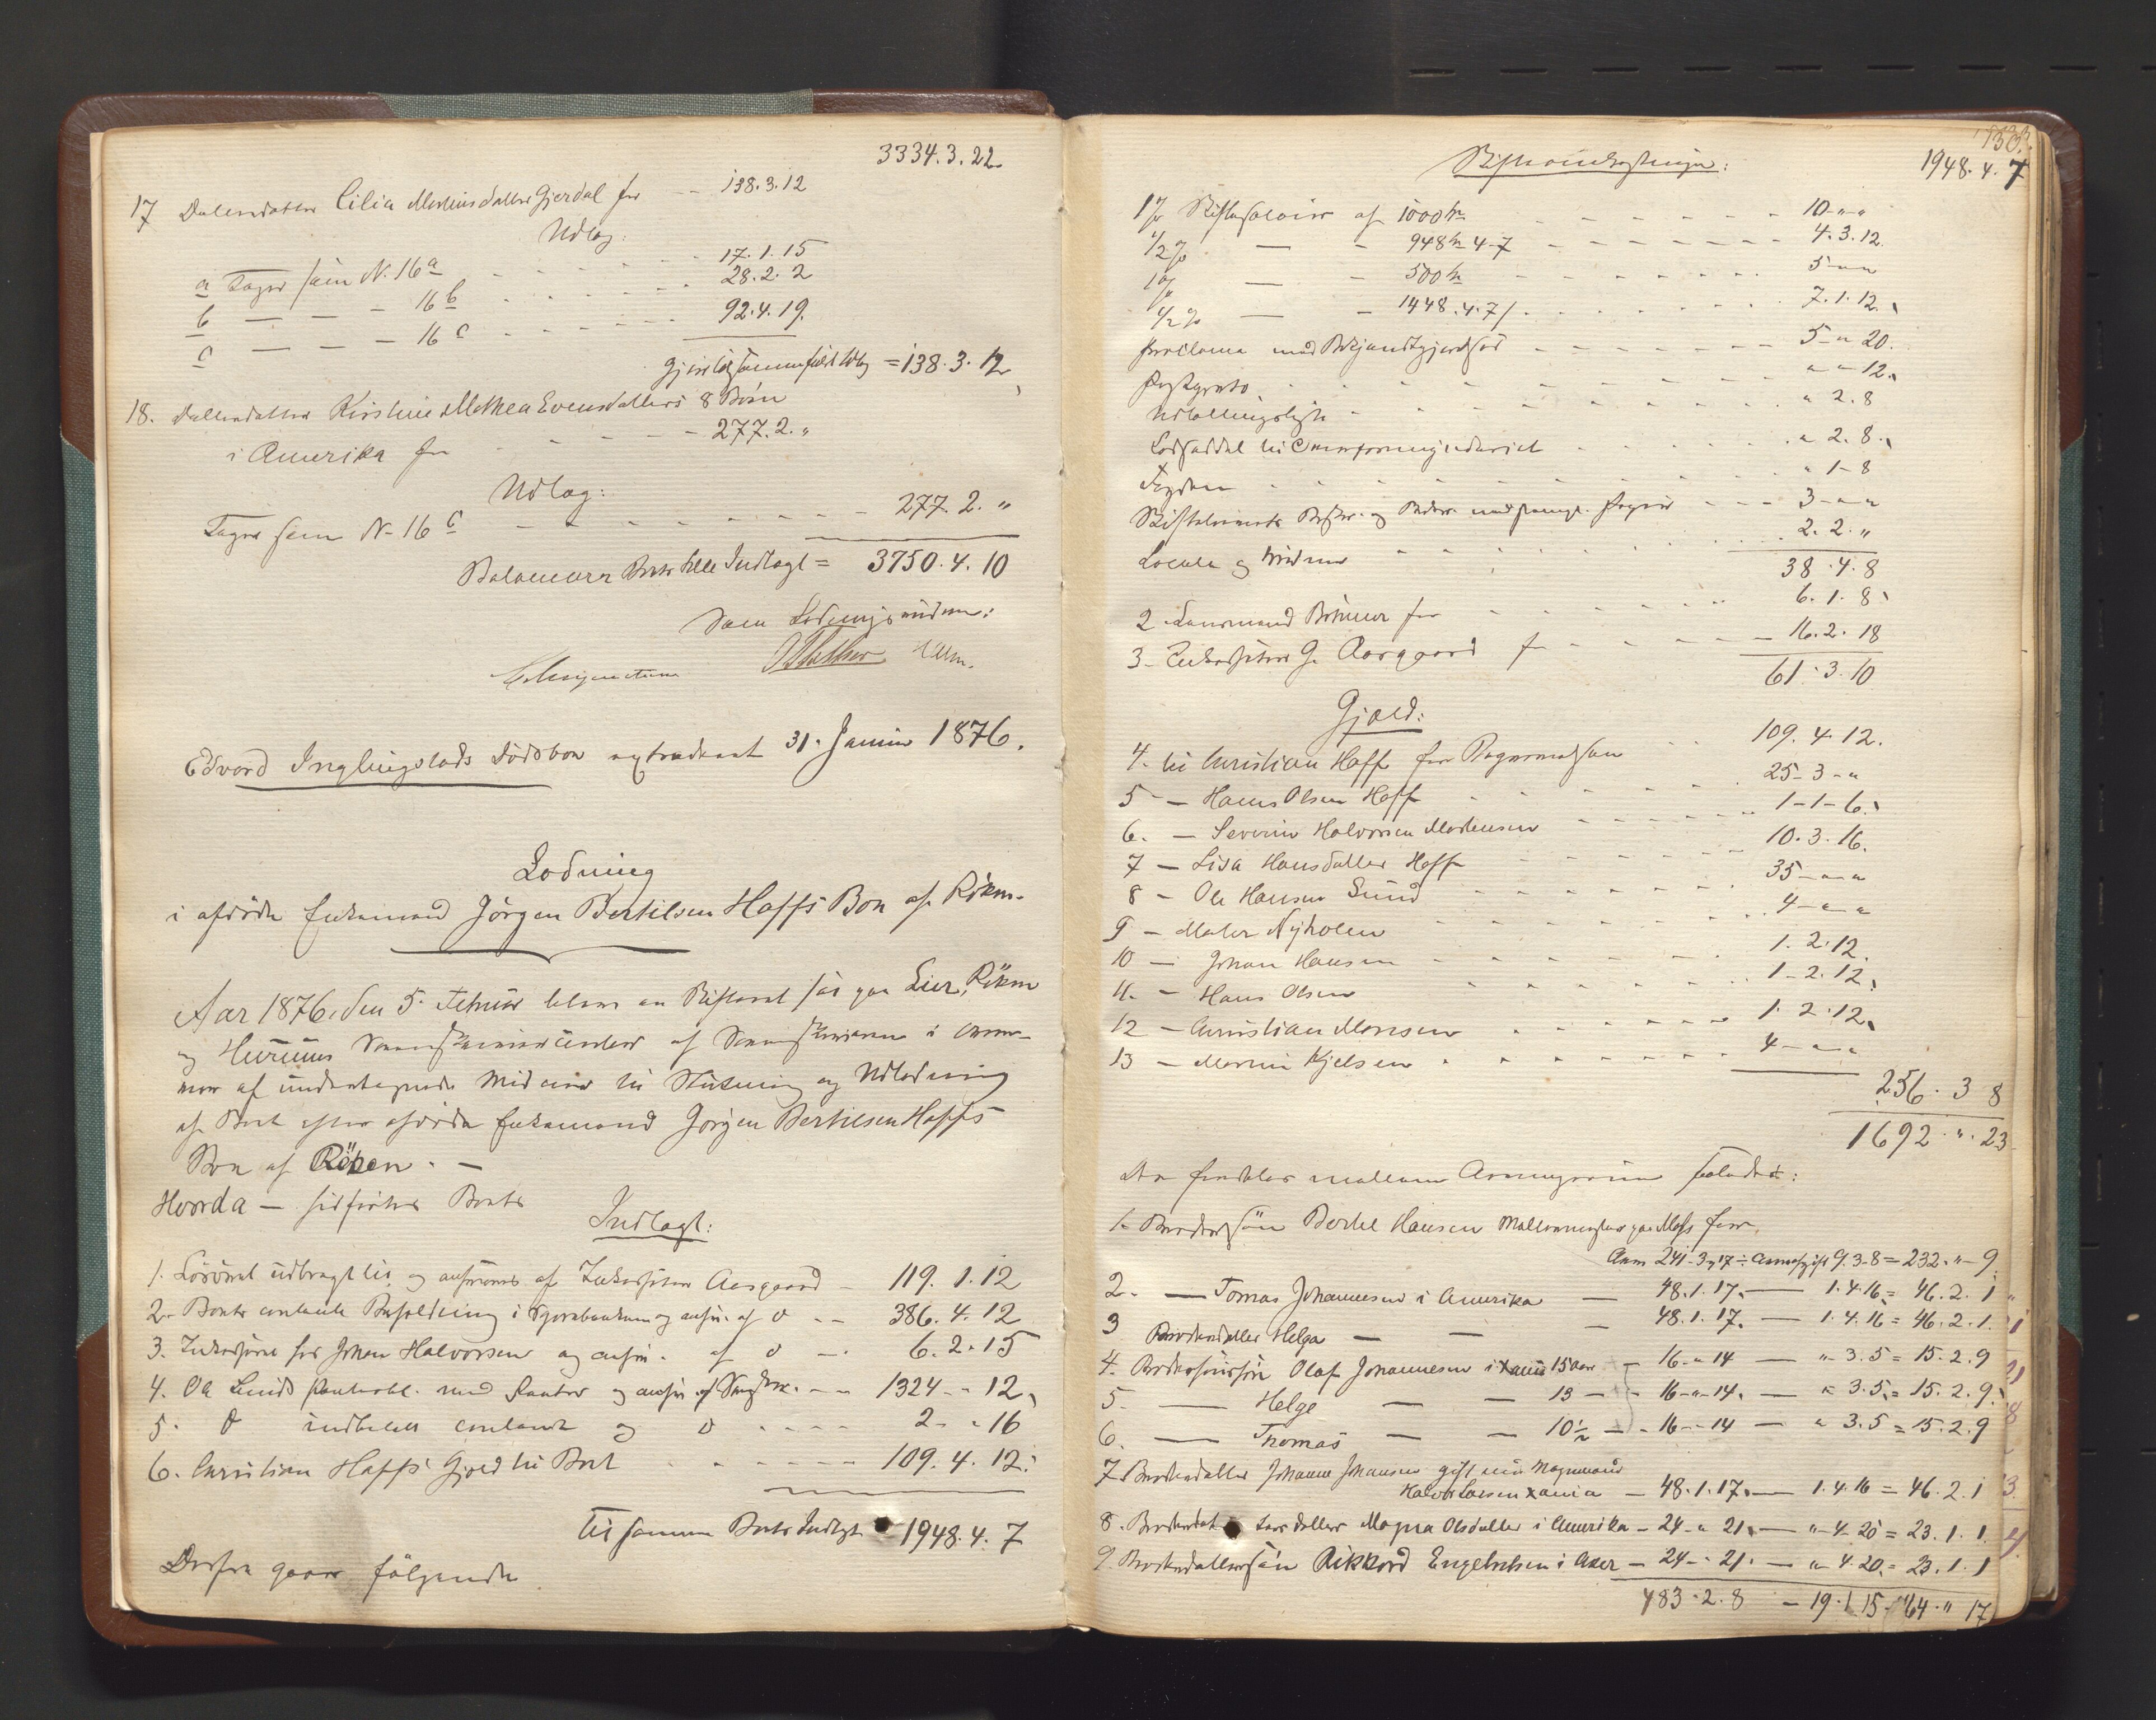 3334.3.22.
17 Datterdatter Cilia Mortinsdatter Gjerdal for -- 138.3.12
Udlæg:
a Tager som N. 16 a - - - 17.1.15
b — — - 16 b - - - 28.2.2
c — — - 16 c - - - 92.4.19.
Gjør tilsammen fuldt Udlæg = 138.3.12
18. Datterdatter Kirstine Mathea Evensdatters 8 Børn
i Amerika for - - - 277.2.„
Udlæg:
Tager som N. 16 c - - - 277.2.„
Balancerer Boets hele Indtægt = 3750.4.10
Som Lodningsvidner:
Edvard Inglingstads Dødsbo extraderet 31. Januar 1876.
Lodning
i afdøde Enkemand Jörgen Bertilsen Hoffs Bo af Röken.
Aar 1876, den 5. Februar blev en Skifteret sat paa Lier, Röken
og Hurums Sorenskriverkontor af Sorenskriveren i Overvær
af undertegnede Vidner til Slutning og Udlodning
af Boet efter afdøde Enkemand Jörgen Bertilsen Hoffs
Bo af Röken. —
Hvorda — sidførtes Boets
Indtægt:
1. Lösöret udbragt til, og ansvares af Inkassator Aasgaard - 119.1.12
2. Boets contante Beholdning i Sparebanken og ansv. af d -- 386.4.12
3. Inkasseret hos Johan Halvorsen og ansv. af d -- 6.2.15
4. Ole Sunds Panteobl. med Renter og ansv. af -- 1324 - - 12
5. d indbetalt contant og d ---- 2 - - 16
6. Christian Hoffs Gjæld til Boet - - - 109.4.12
Tilsammen Boets Indtægt 1948.4.7
Derfra gaar følgende
133.
Skifteomkostninger: 1948.4.7
1% Skiftesalair af 1000 - - - 10 - „ - „
1/2% — - 948 4-7 - - - 4.3.12.
1% — - 500 - - - 5 - „ „
1/2% — - 1448.4.7 - - - 7.1.12.
Proclama med Bekjendtgjørelse - - - 5 - „ 20.
Postporto - - - „ „ 12.
Udlodningslyst - - - „ 2.8
Lodseddel til Overformynderiet - - - „ 2.8
Fogden - - - „ 1-8
- - - 3 - „ „
Locale og Vidner - - - 2.2.„
38.4.8
2 Lensmand for - - - 6.1.8
3 - Inkassator G. Aasgaard for - - - 16.2.18
61.3.10
Gjæld:
4. til Christian Hoff for - - 109.4.12.
5 - — Hans Olsen Hoff - - - 25-3-„
6. — Severin Halvorsen Mortensen - - - 1-1-6.
7 — Lisa Hansdatter Hoff - - - 10.3.16.
8 — Ole Hansen Sund - - - 35 - „ „
9 — Maler Nyholen - - - 4 - „ „
10 — Johan Hansen - - - 1.2.12.
11. — Hans Olsen - - - 1-2.12.
12 — Christian Monsen - - - 1.2.12.
13 — Martin Kjelsen - - - 4 - „ „
256.3 8
1692.„.23
Der fordeles mellem Arvingerne saaledes:
1. Brodersön Bertel Hansen paa Moss for
Arv 241-3-17 ÷ Arveafgift 9.3-8 = 232.„-9
2. — Tomas Johannesen i Amerika — 48.1.17. — 1.4.16 = 46.2.1
3 Broderdatter Helga — — 48.1.17. — 1.4.16 = 46.2.1.
4. Brodersönssön Olaf Johannesen i Xania 15 Aar - 16-„14 — „-3.5 = 15.2.9
5. — Helge — — 13 — - 16-„-14. — „ 3.5. = 15.2.9.
6. — Thomas — — 10½ — - 16--14 — „ 3.5 = 15.2.9
7 Broderdatter Johanne Johansen gift med Vognmand
Halvor Larsen Xania — 48.1.17. — 1.4.16 = 46.2.1
8. Broderdatters datter Magna Olsdatter i Amerika - 24-„21. — „-4-20 = 23.1.1.
9. Broderdattersön Rikkard Engebretsen i Asker — 24-„21. — „ 4.20. = 23.1.1
483.2.8 - 19.1.15 - 464.„ 17